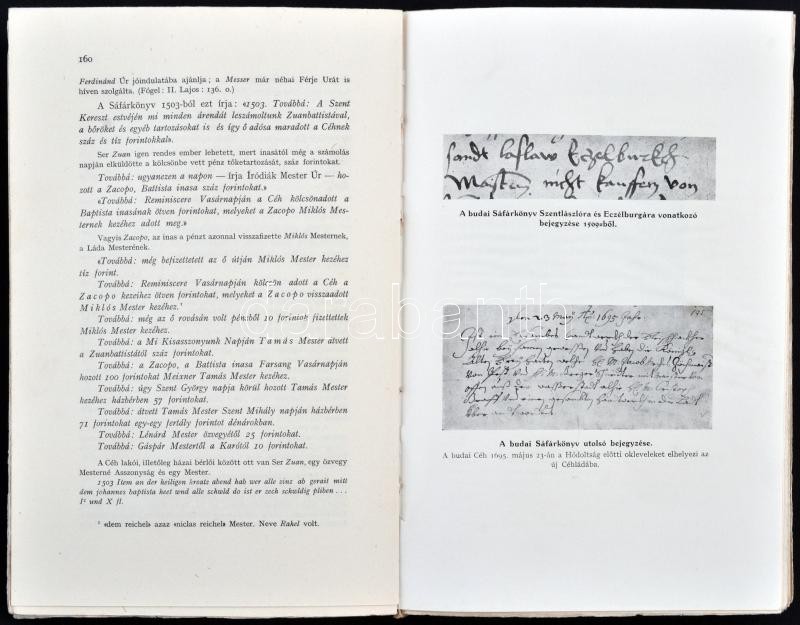 160
Ferdinánd Úr jóindulatába ajánlja; a Messer már néhai Férje Urát is
híven szolgálta. (Fógel: II. Lajos: 136. o.)
A Sáfárkönyv 1503-ból ezt írja: «1503. Továbbá: A Szent
Kereszt estvéjén mi minden árendát leszámoltunk Zuanbattistával,
a bőröket és egyéb tartozásokat is és így ő adósa maradott a Céhnek
száz és tíz forintokkal».
Ser Zuan igen rendes ember lehetett, mert inasától még a számolás
napján elküldötte a kölcsönbe vett pénz tőketartozását, száz forintokat.
Továbbá: ugyanezen a napon — írja Íródiák Mester Úr — ho-
zott a Zacopo, Battista inasa száz forintokat.»
«Továbbá: Reminiscere Vasárnapján a Céh kölcsönadott a
Baptista inasának ötven forintokat, melyeket a Zacopo Miklós Mes-
ternek kezéhez adott meg.»
Vagyis Zacopo, az inas a pénzt azonnal visszafizette Miklós Mesternek,
a Láda Mesterének.
«Továbbá: még befizettetett az ő útján Miklós Mester kezéhez
tíz forint.
Továbbá: Reminiscere Vasárnapján kölcsön adott a Céh a
Zacopo kezeihez ötven forintokat, melyeket a Zacopo visszaadott
Miklós Mester kezéhez.¹
Továbbá: még az ő rovásán volt pénzből 10 forintok fizettettek
Miklós Mester kezéhez.
Továbbá: a Mi Kisasszonyunk Napján Tamás Mester átvett
a Zuanbattistától száz forintokat.
Továbbá: a Zacopo, a Battista inasa Farsang Vasárnapján
hozott 100 forintokat Meixner Tamás Mester kezéhez.
Továbbá: úgy Szent György napja körül hozott Tamás Mester
kezéhez házbérben 57 forintokat.
Továbbá: átvett Tamás Mester Szent Mihály napján házbérben
71 forintokat egy-egy fertály forintot dénárokban.
Továbbá: Lénárd Mester özvegyétől 25 forintokat.
Továbbá: Gáspár Mestertől a Karótól 10 forintokat.
A Céh lakói, illetőleg házai bérlői között ott van Ser Zuan, egy özvegy
Mesterné Asszonyság és egy Mester.
1503 Item an der heiligen kreatz abend hab wer alle zinz ab gerait mit
dem johannes baptista heet wnd alle schwld do ist er zech schwldig pliben . . .
I^c und X fl.
¹ «dem reichel» azaz «niclas reichel» Mester. Neve Rakel volt.
sandt laslaw Eczelburkch
nicht kauffen von
A budai Sáfárkönyv Szentlászlóra és Eczélburgára vonatkozó
bejegyzése 1509-ből.
A budai Sáfárkönyv utolsó bejegyzése.
A budai Céh 1695. május 23-án a Hódoltság előtti okleveleket elhelyezi az
új Céhládába.
darabanth